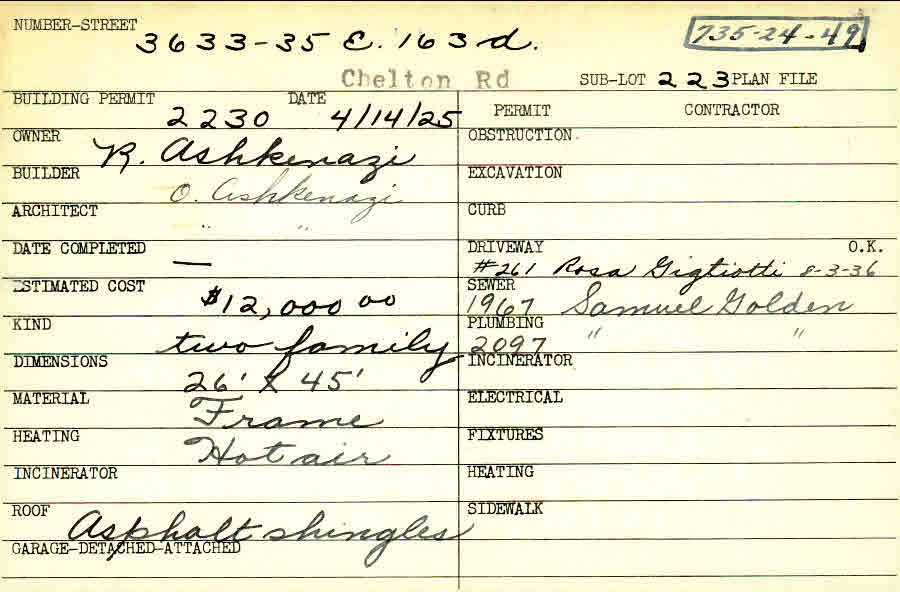 NUMBER-STREET 3633-35 E. 163 d. 735-24-49
Chelton Rd SUB-LOT 223 PLAN FILE
BUILDING PERMIT 2230 DATE 4/14/25 PERMIT CONTRACTOR
OWNER R. Ashkenazi OBSTRUCTION
BUILDER O. Ashkenazi EXCAVATION
ARCHITECT " " CURB
DATE COMPLETED — DRIVEWAY O.K.
#261 Rosa Gigliotti 8-3-36
ESTIMATED COST $12,000 00 SEWER 1967 Samuel Golden
KIND two family PLUMBING 2097 " "
DIMENSIONS 26' X 45' INCINERATOR
MATERIAL Frame ELECTRICAL
HEATING Hot air FIXTURES
INCINERATOR HEATING
ROOF Asphalt shingles SIDEWALK
GARAGE-DETACHED-ATTACHED